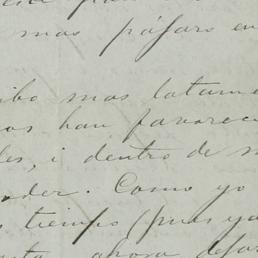 mas pájaro en
ibo mas latame
os han favoreci
les, i dentro de m
der. Como yo
s tiempo (pues ya
ahora